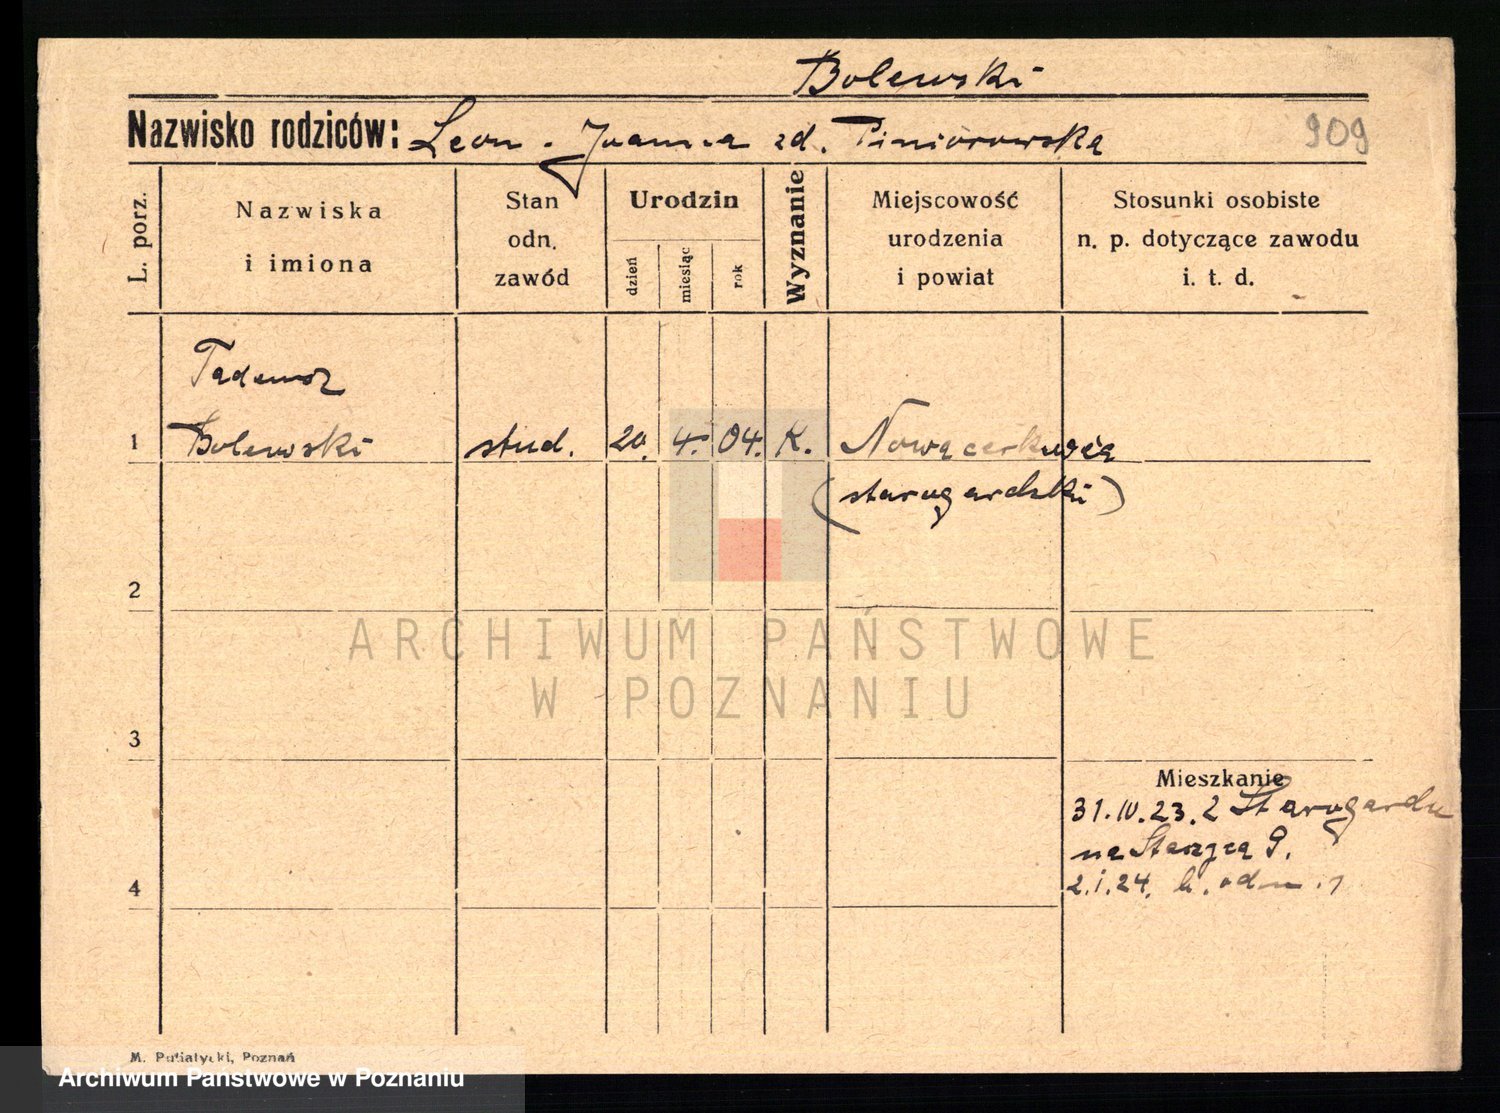 Bolewski
Nazwisko rodziców: Leon. Joanna zd. Piniorowska
909
L. porz.
Nazwiska
i imiona
Stan
odn.
zawód
Urodzin
dzień
miesiąc
rok
Wyznanie
Miejscowość
urodzenia
i powiat
Stosunki osobiste
n. p. dotyczące zawodu
i. t. d.
Tadeusz
1 Bolewski stud. 20. 4. 04. K. Nowa cerkwia
(starogardzki)
2
3
Mieszkanie
31.IV.23. z Starogardu
na 9.
4 2.I.24.
ARCHIWUM PAŃSTWOWE
W POZNANIU
M. Putiatycki, Poznań
Archiwum Państwowe w Poznaniu